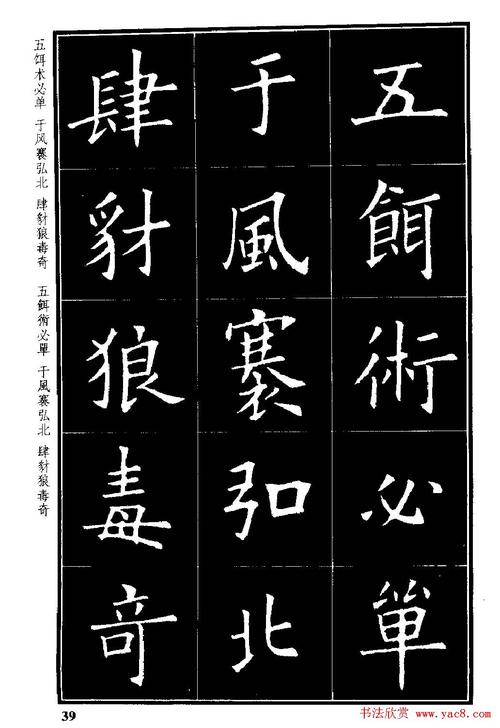 五餌術必單
于風褰弘北
肆豺狼毒奇
五饵术必单 于风褰弘北 肆豺狼毒奇 五餌術必單 于風褰弘北 肆豺狼毒奇
39
书法欣赏 www.yac8.com